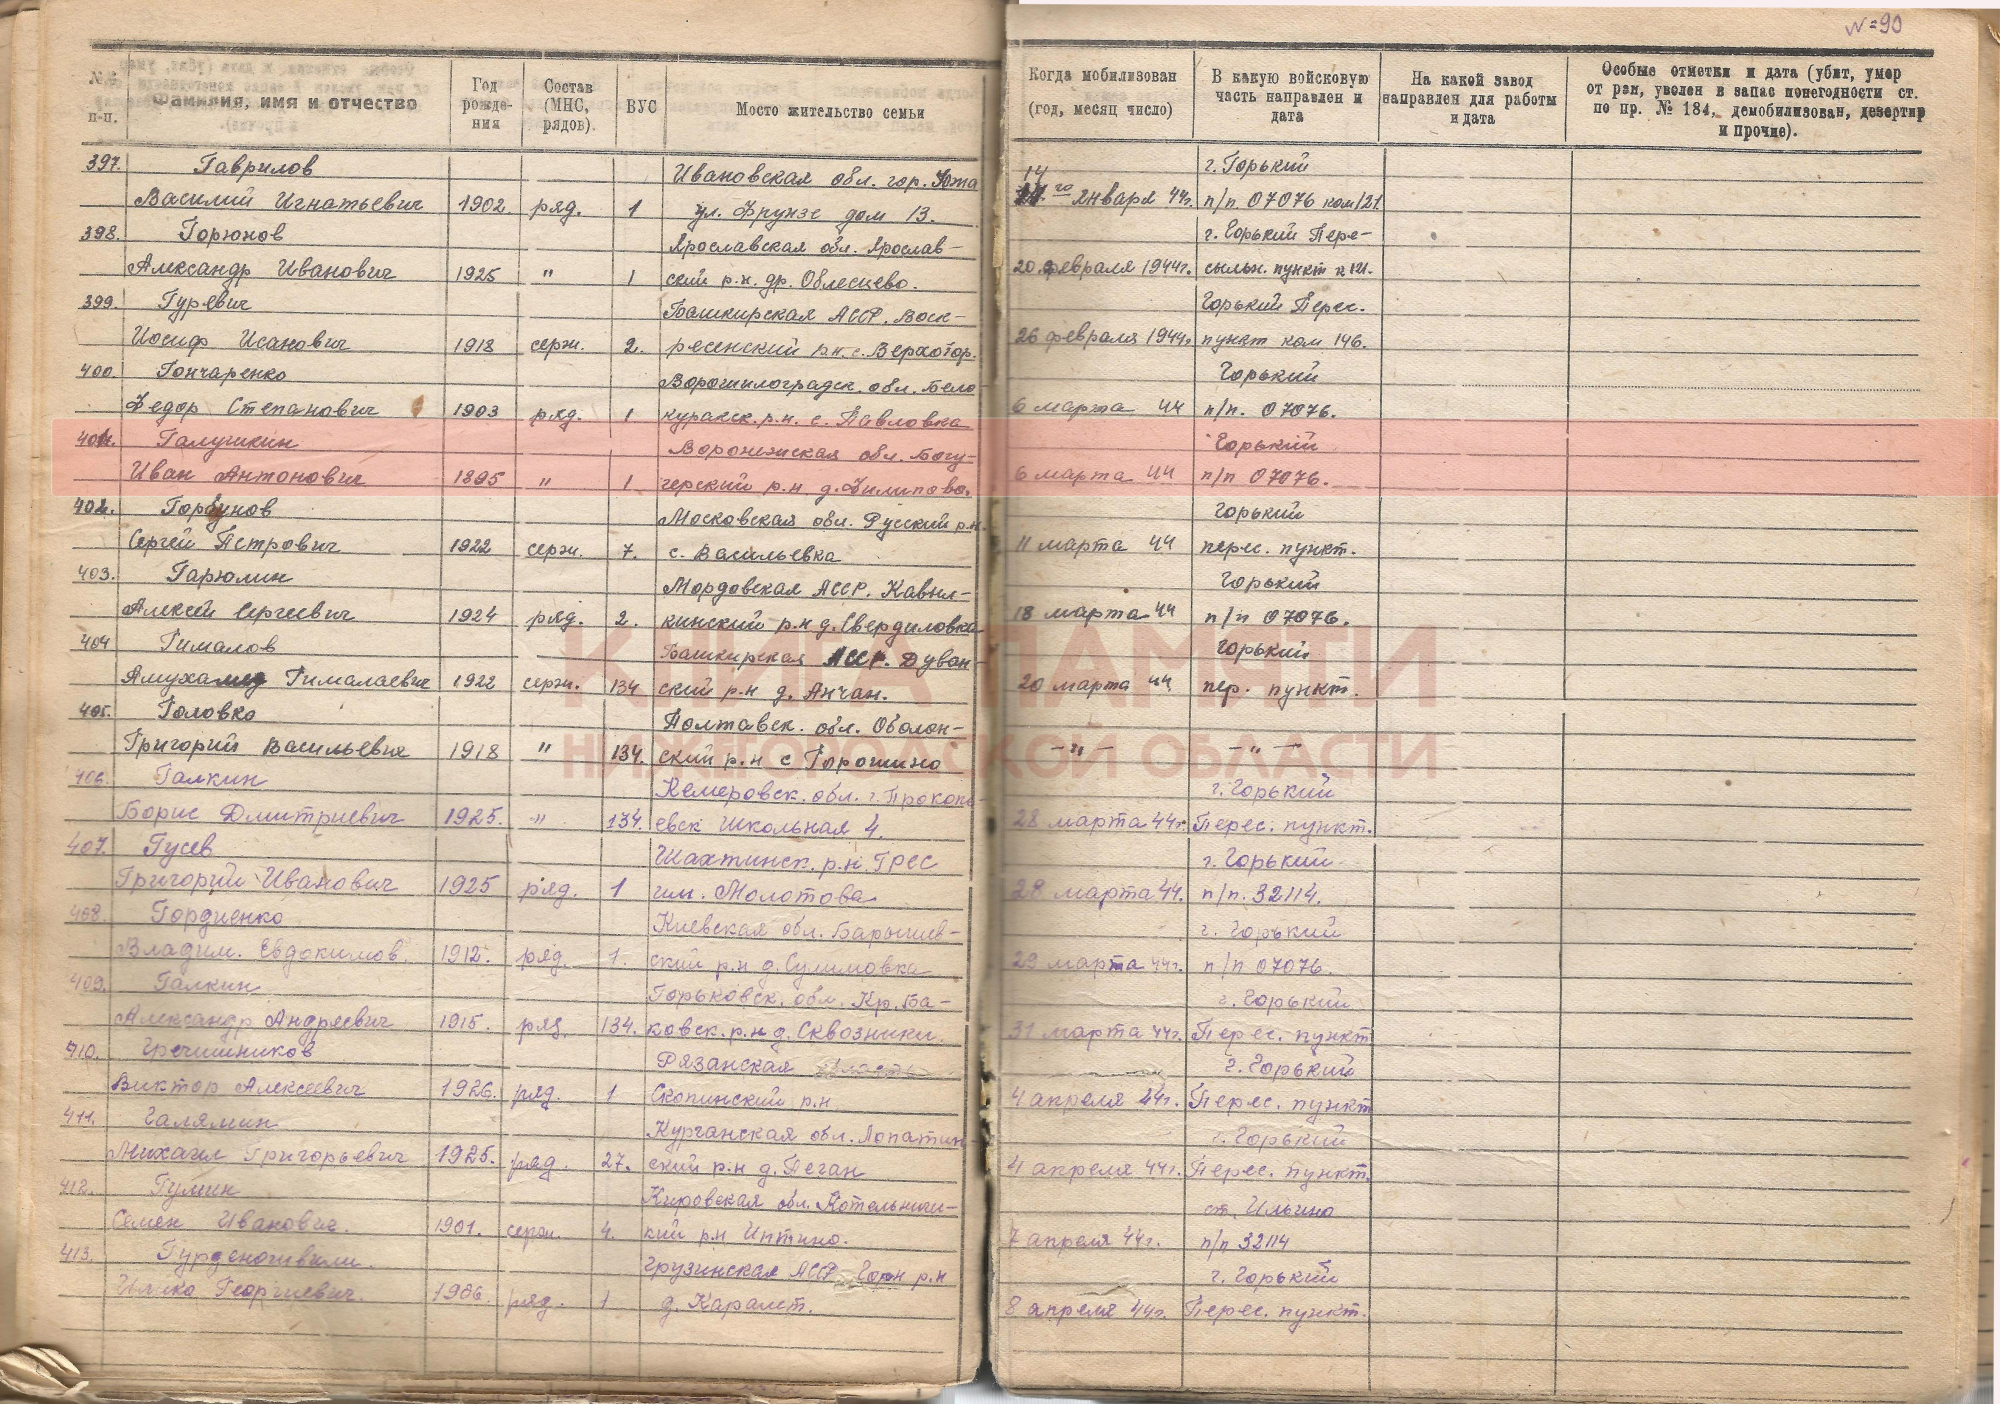 № 90
№№ п-п.
Фамилия, имя и отчество
Год рождения
Состав (МНС, рядов).
ВУС
Место жительство семьи
Когда мобилизован (год, месяц число)
В какую войсковую часть направлен и дата
На какой завод направлен для работы и дата
Особые отметки и дата (убит, умер от ран, уволен в запас понегодности ст. по пр. № 184, демобилизован, дезертир и прочие).
397. Гаврилов Ивановская обл. гор. Южа 14 г. Горький
Василий Игнатьевич 1902. ряд. 1 ул. Фрунзе дом 13. го января 44г. п/п. 07076 ком 121.
398. Горюнов Ярославская обл. Ярослав- г. Горький Пере-
Александр Иванович 1925 " 1 ский р.н. др. Облесцево. 20 февраля 1944г. сыльн. пункт к 121.
399. Гуревич Башкирская АССР. Воск- Горький Перес.
Иосиф Исанович 1918 серж. 2. ресенский р.н. с. Верхотор. 26 февраля 1944г. пункт ком 146.
400. Гончаренко Ворошилоградск. обл. Бело- Горький
Федор Степанович 1903 ряд. 1. куракск. р.н. с. Павловка 6 марта 44 п/п. 07076.
401. Галушкин Воронежская обл. Богу- Горький
Иван Антонович 1895 " 1 черский р.н д. Филипово. 6 марта 44 п/п 07076.
402. Горбунов Московская обл. Русский р.н. Горький
Сергей Петрович 1922 серж. 7. с. Васильевка 11 марта 44 перес. пункт.
403. Гарюлин Мордовская АССР. Кавыл- Горький
Алексей Сергеевич 1924 ряд. 2. кинский р.н д. Свердиловка 18 марта 44 п/п 07076.
404 Гималов Башкирская АССР. Дуван- Горький
Амухамед Гималаевич 1922 серж. 134 ский р.н д. Анчан. 20 марта 44 пер. пункт.
405. Головко Полтавск. обл. Оболон-
Григорий Васильевич 1918 " 134. ский р.н с Горошино -"- -"-
406. Галкин Кемеровск. обл. г. Прокопь- г. Горький
Борис Дмитриевич 1925. " 134. евск Школьная 4. 28 марта 44г. Перес. пункт.
407. Гусев Шахтинск. р.н. ГРЕС г. Горький
Григорий Иванович 1925 ряд. 1 им. Молотова 28 марта 44. п/п. 32114.
408. Гордиенко Киевская обл. Барышев- г. Горький
Владим. Евдокимов. 1912. ряд. 1. ский р.н д. Сулимовка 29 марта 44г. п/п 07076.
409. Галкин Горьковск. обл. Кр. Ба- г. Горький
Александр Андреевич 1915. ряд. 134. ковск. р.н д. Сквозники. 31 марта 44г. Перес. пункт
410. Гречишников Рязанская область г. Горький
Виктор Алексеевич 1926. ряд. 1 Скопинский р.н 4 апреля 44г. Перес. пункт
411. Галямин Курганская обл. Лопатин- г. Горький
Михаил Григорьевич 1925. ряд. 27. ский р.н д. Пеган 4 апреля 44г. Перес. пункт.
412. Гулин Кировская обл. Котельнич- ст. Ильино
Семен Иванович. 1901. серж. 4. кий р.н Интино. 7 апреля 44г. п/п 32114
413. Грузинская АССР Гори р.н г. Горький
Георгиевич. 1906. ряд. 1 д. Каралет. 8 апреля 44г. Перес. пункт.
КНИГА ПАМЯТИ
НИЖЕГОРОДСКОЙ ОБЛАСТИ